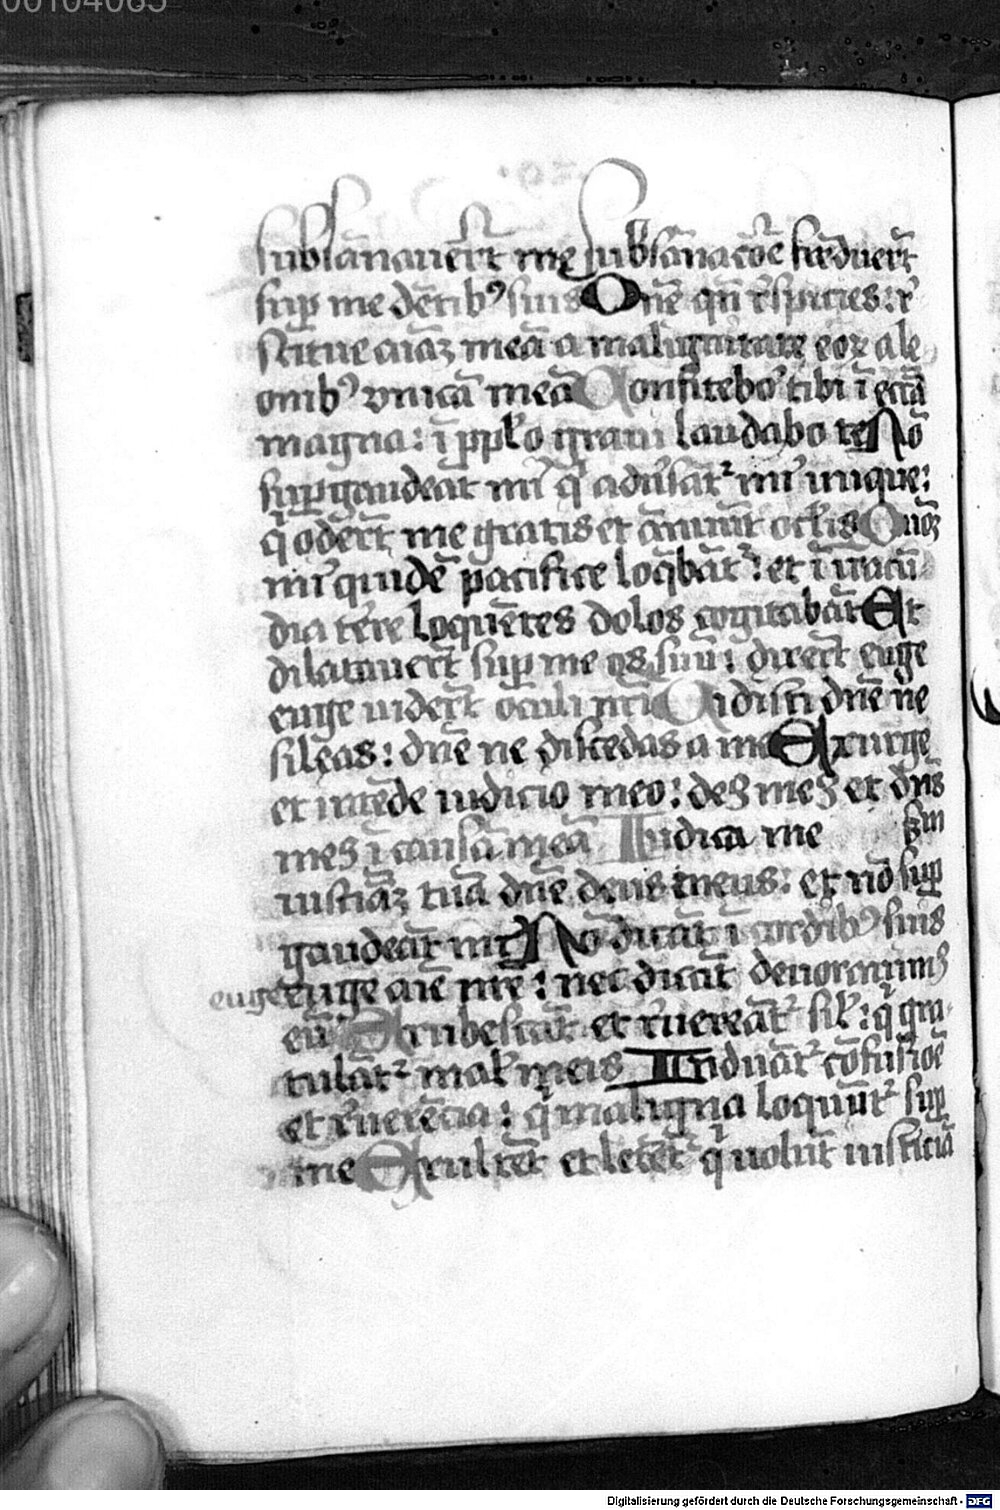 00104085
subsanauert̄ me subsanacōe frēduert̄
sup me dētib⁹ suis Dn̄e qn̄ respicies: re
stitue aīaz meā a malignitate eoꝝ a le
onib⁹ vnicā meā Confitebor tibi ī ecc̄ia
magna: ī pplo graui laudabo te Nō
supgaudeāt m̄i q̄ adūsāt᷑ m̄i inique:
q̄ odert̄ me gratis et ānuūt oclis Quoꝫ
m̄i quidē pacifice loq̄bāt᷑: et ī iracū
dia t̄re loquētes dolos cogitabāt Et
dilatauert̄ sup me os suū: dixert̄ euge
euge uidert̄ oculi nr̄i Uidisti dn̄e ne
sileas: dn̄e ne discedas a me Exurge
et intēde iudicio meo: de⁹ me⁹ et dn̄s
me⁹ ī causā meā Iudica me sm̄
iusticiāz tuā dn̄e deus meus: et nō sup
gaudeāt m̄i Nō dicāt ī cordib⁹ suis
euge euge aīe nr̄e: nec dicāt deuorauim⁹
eū Erubescāt et reuereāt᷑ sil: q̄ gra
tulāt᷑ mal meis Induāt᷑ cōfusiōe
et reuerēcia: q̄ maligna loquūt᷑ sup
me Exultēt et letēt᷑ q̄ uolūt iusticiā
Digitalisierung gefördert durch die Deutsche Forschungsgemeinschaft - DFG